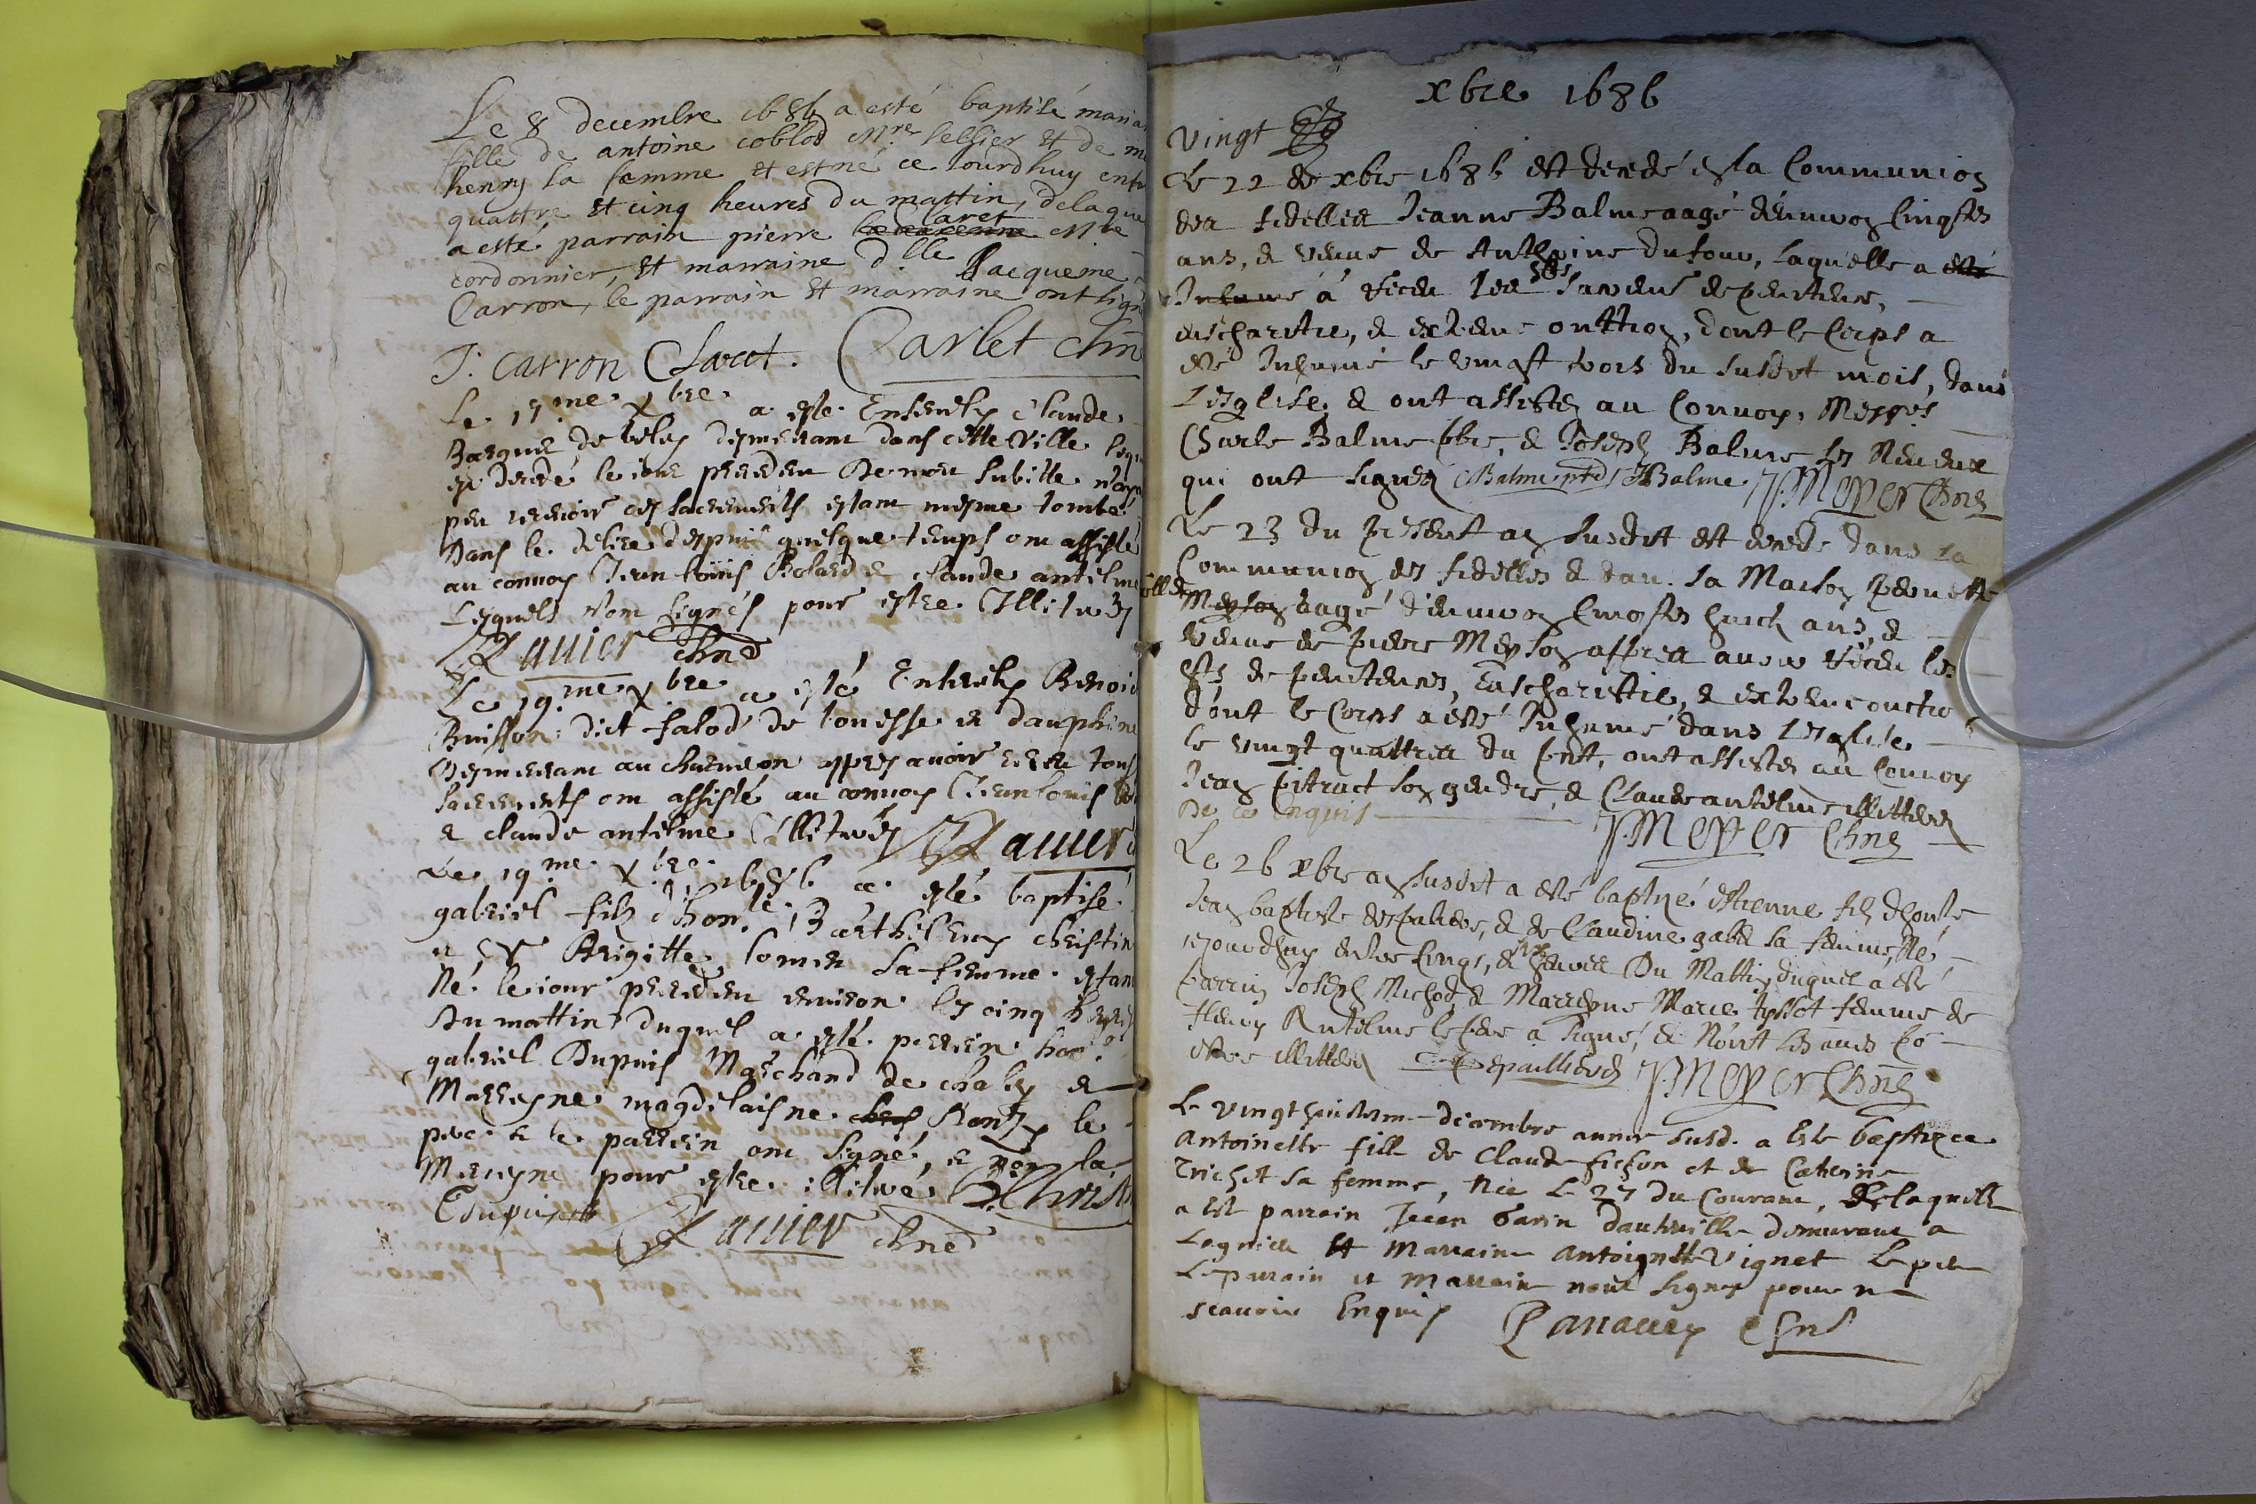 Le 8 decembre 1686 a esté baptisé maria
fille de antoine coblod Mre sellier et de
henry sa femme et est né ce Iourdhuy entre
quattre et cinq heures du mattin, delaque
a esté parrain pierre Claret Mre
cordonnier, et marraine dlle Jacqueme
Carron, le parrain et marraine ont signé
J. carron Claret. Carlet chne
Le 17me xbre a esté Ensevely Claude
Bacquie de beley demeurant dans cette Ville lequ
est decedé le jour precedent De mort subitte n'aya
peu recevoir ces sacrements estant mesme tombé
Dans le delire depuis quelque temps ont assisté
au convoy Jean louis & claude antelme
Lesquels n'ont signés pour estre Illiterés
Ravier chne
Le 19me xbre a esté Ensevely Benoit
Buisson dict falod de en dauphiné
Demeurant au apres avoir receu tous
sacrements ont assisté au convoy Jean louis
& claude antelme Illiterés Ravier
Le 19me xbre 1686 a esté baptisé
gabriel fils d'honle Barthelemy christin
et de Brigitte sa femme estant
Né le jour precedent environ les cinq heures
Du mattin duquel a esté perrein honle
gabriel Dupuis Marchand de &
Marreyne magdelaisne Rontz le
pere & le parrein ont signé, & non la
Mareyne pour estre illiteré Christin
Dupuis Ravier chne
xbre 1686
vingt
Le 22 de xbre 1686 est decedé en la Communion
des fidelles Jeanne Balme aagé d'environ cinqtes
ans, & veuve de Anthoine dufour, laquelle a esté
Inhumé a receu les Sts Sacrems de penitence,
eucharitie, & extreme onttion, dont le Corps a
esté Inhumé le vingt trois du susdit mois, dans
L'esglise, & ont assistes au Convoy, Messrs
Charle Balme pbre, & Joseph Balme ses Neveux
qui ont signes Balme ptre JBalme J. Meyer Chne
Le 23 du present an susdit est decede dans la
Communion des fidelles & dan. sa Maison pernette
Meyson aagé d'environ soixante huict ans, &
veuve de pierre Meyson appres avoir receu les
Sts de penitences, Eucharistie, & extreme onctio
dont le Corps a esté Inhumé dans L'esglise
le vingt quattre du pnt, ont assistes au Convoy
Jean pitruct son gendre, & Claude antelme illitteres
De ce Enquis J. Meyer Chne
Le 26 xbre an susdit a esté baptizé estienne filz d'honle
Jean baptiste despalieres, & de Claudine gabet sa femme, Né
cejourdhuy entre cinqs, & six heures Du Mattin, duquel a esté
parrin Joseph Michod & Marreyne Marie tyssot femme de
fleury Antelme le pere a signé, & Non les aues po
estre illitteres Depallieres J. Meyer Chne
Le vingt huictiem decembre annee susd. a esté baptizee
Antoinette fille de Claude fichon et de Catherine
Trichet sa femme, née le 27 du Courant, De laquelle
a esté parrain Jean Garin dauteville demeurant a
Lagnieu et marraine Antoignette Vignet Le pere
Le parrain et marraine nont signes pour ne
scavoir Enquis Panavey chne